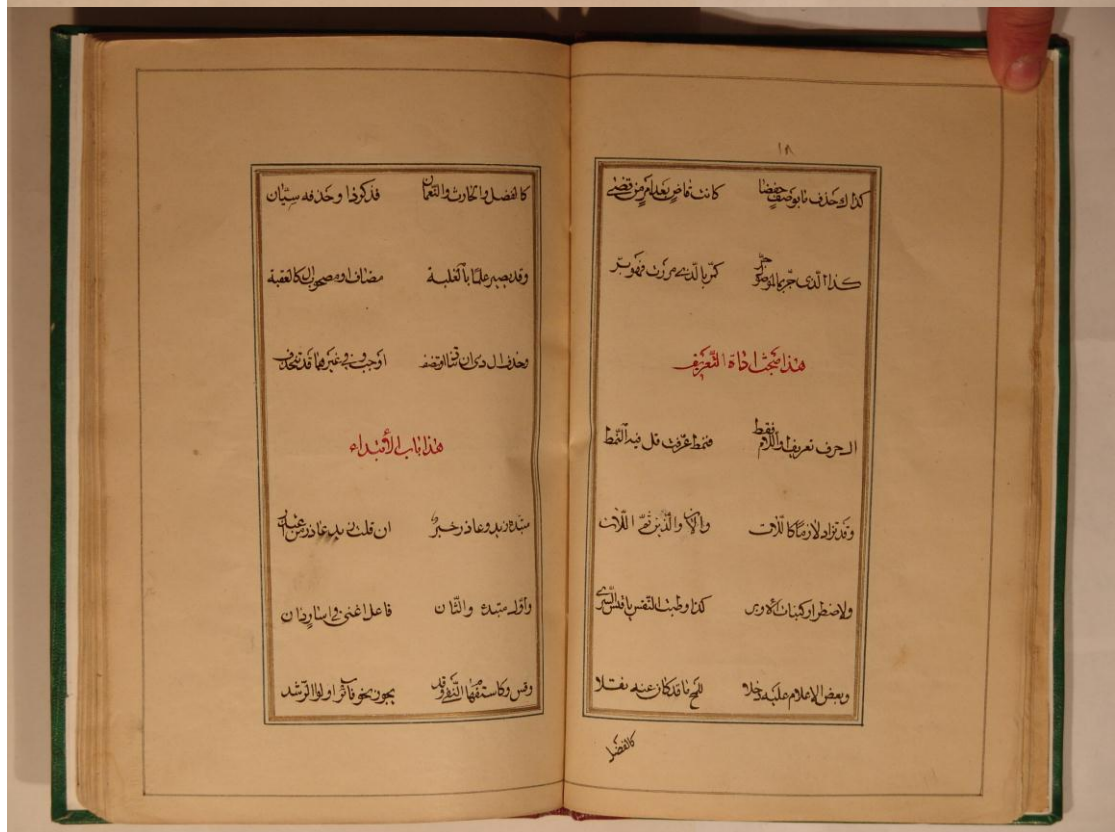 ١٨
كذاك حذف ما بوصف خفضا كانت قاض بعد امر من قضى
كذا الذى جر بما الموصول جر كمر بالذى مررت فهو بر
هذا مبحث اداة التعريف
ال حرف تعريف او اللام فقط فنمط عرفت قل فيه النمط
وقد تزاد لازما كاللات والان والذين ثم اللات
ولاضطرار كبنات الاوبر كذا وطبت النفس يا قيس السرى
وبعض الاعلام عليه دخلا للمح ما قد كان عنه نقلا
كالفضل
كالفضل والحارث والنعمان فذكر ذا وحذفه سيان
وقد يصير علما بالغلبة مضاف او مصحوب ال كالعقبة
وحذف ال ذى ان تناد او تضف اوجب وفى غيرهما قد تنحذف
هذا باب الأبتداء
مبتدء زيد وعاذر خبر ان قلت زيد عاذر من اعتذر
واول مبتدء والثان فاعل اغنى فى اسار ذان
وقس وكاستفهام النفى وقد يجوز نحو فائز اولوا الرشد